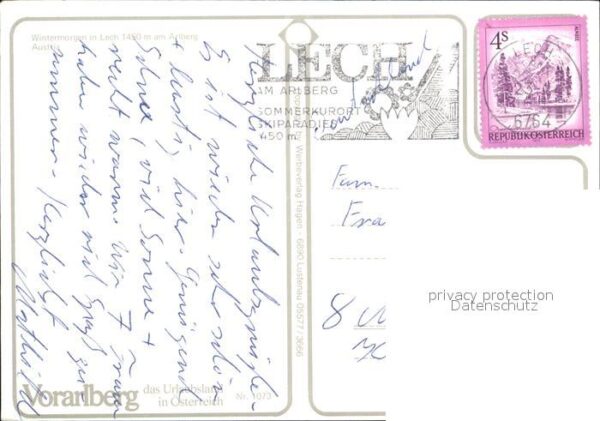 Wintermorgen in Lech 1450 m am Arlberg
Austria
LECH
AM ARLBERG
SOMMERKURORT
SKIPARADIES
1450 m
4S
REPUBLIK ÖSTERREICH
LECH
6764
Herzliche Urlaubsgrüße.
Es ist wieder sehr schön
+ lustig hier. Genügend
Schnee, viel Sonne +
recht warm. Wir 7 Frauen
haben wieder viel Spaß zu-
sammen. Herzlichst
Mathilde
Fam.
Fra
8
Werbeverlag Hagen - 6890 Lustenau 05577 / 3666
privacy protection
Datenschutz
Vorarlberg das Urlaubsland
in Österreich
Nr. 1073